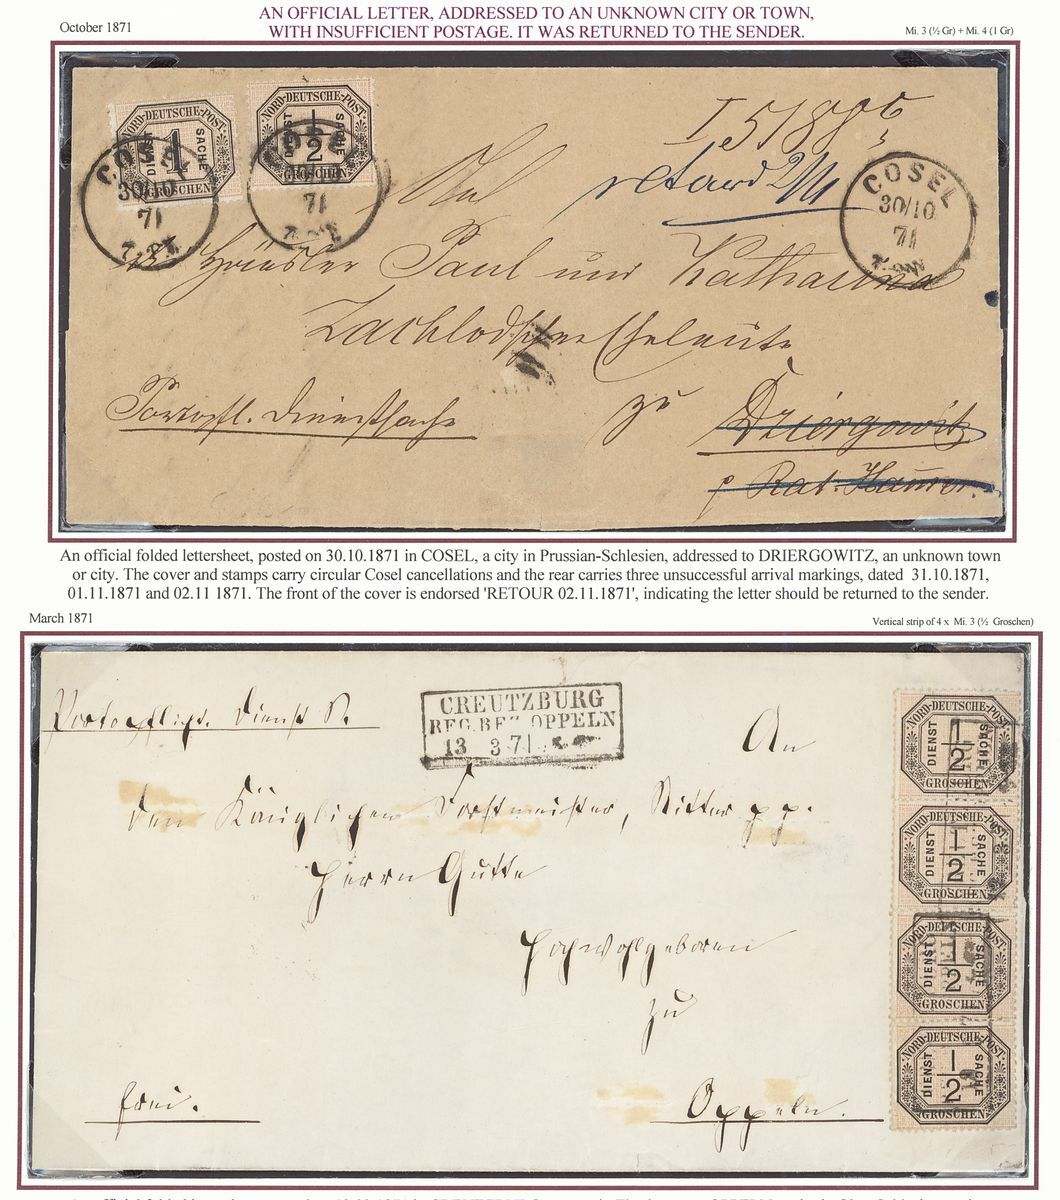 October 1871
AN OFFICIAL LETTER, ADDRESSED TO AN UNKNOWN CITY OR TOWN,
WITH INSUFFICIENT POSTAGE. IT WAS RETURNED TO THE SENDER.
Mi. 3 (½ Gr) + Mi. 4 (1 Gr)
NORD-DEUTSCHE-POST
DIENST 1 SACHE
GROSCHEN
NORD-DEUTSCHE-POST
DIENST 1/2 SACHE
GROSCHEN
COSEL
30/10
71
COSEL
71
COSEL
30/10
71
An
Häusler Paul und Katharina
Eheleute
Portopfl. Dienstsache
zu
Dziergowitz
p Rat.
An official folded lettersheet, posted on 30.10.1871 in COSEL, a city in Prussian-Schlesien, addressed to DRIERGOWITZ, an unknown town
or city. The cover and stamps carry circular Cosel cancellations and the rear carries three unsuccessful arrival markings, dated 31.10.1871,
01.11.1871 and 02.11 1871. The front of the cover is endorsed 'RETOUR 02.11.1871', indicating the letter should be returned to the sender.
March 1871
Vertical strip of 4 x Mi. 3 (½ Groschen)
Portopflicht. Dienst S.
CREUTZBURG
REG.BEZ OPPELN
13 3 71
An
den Königlichen Forstmeister, Ritter p.p.
Herrn Gutte
Hochwohlgeboren
zu
frei.
Oppeln.
NORD-DEUTSCHE-POST
DIENST 1/2 SACHE
GROSCHEN
NORD-DEUTSCHE-POST
DIENST 1/2 SACHE
GROSCHEN
NORD-DEUTSCHE-POST
DIENST 1/2 SACHE
GROSCHEN
NORD-DEUTSCHE-POST
DIENST 1/2 SACHE
GROSCHEN